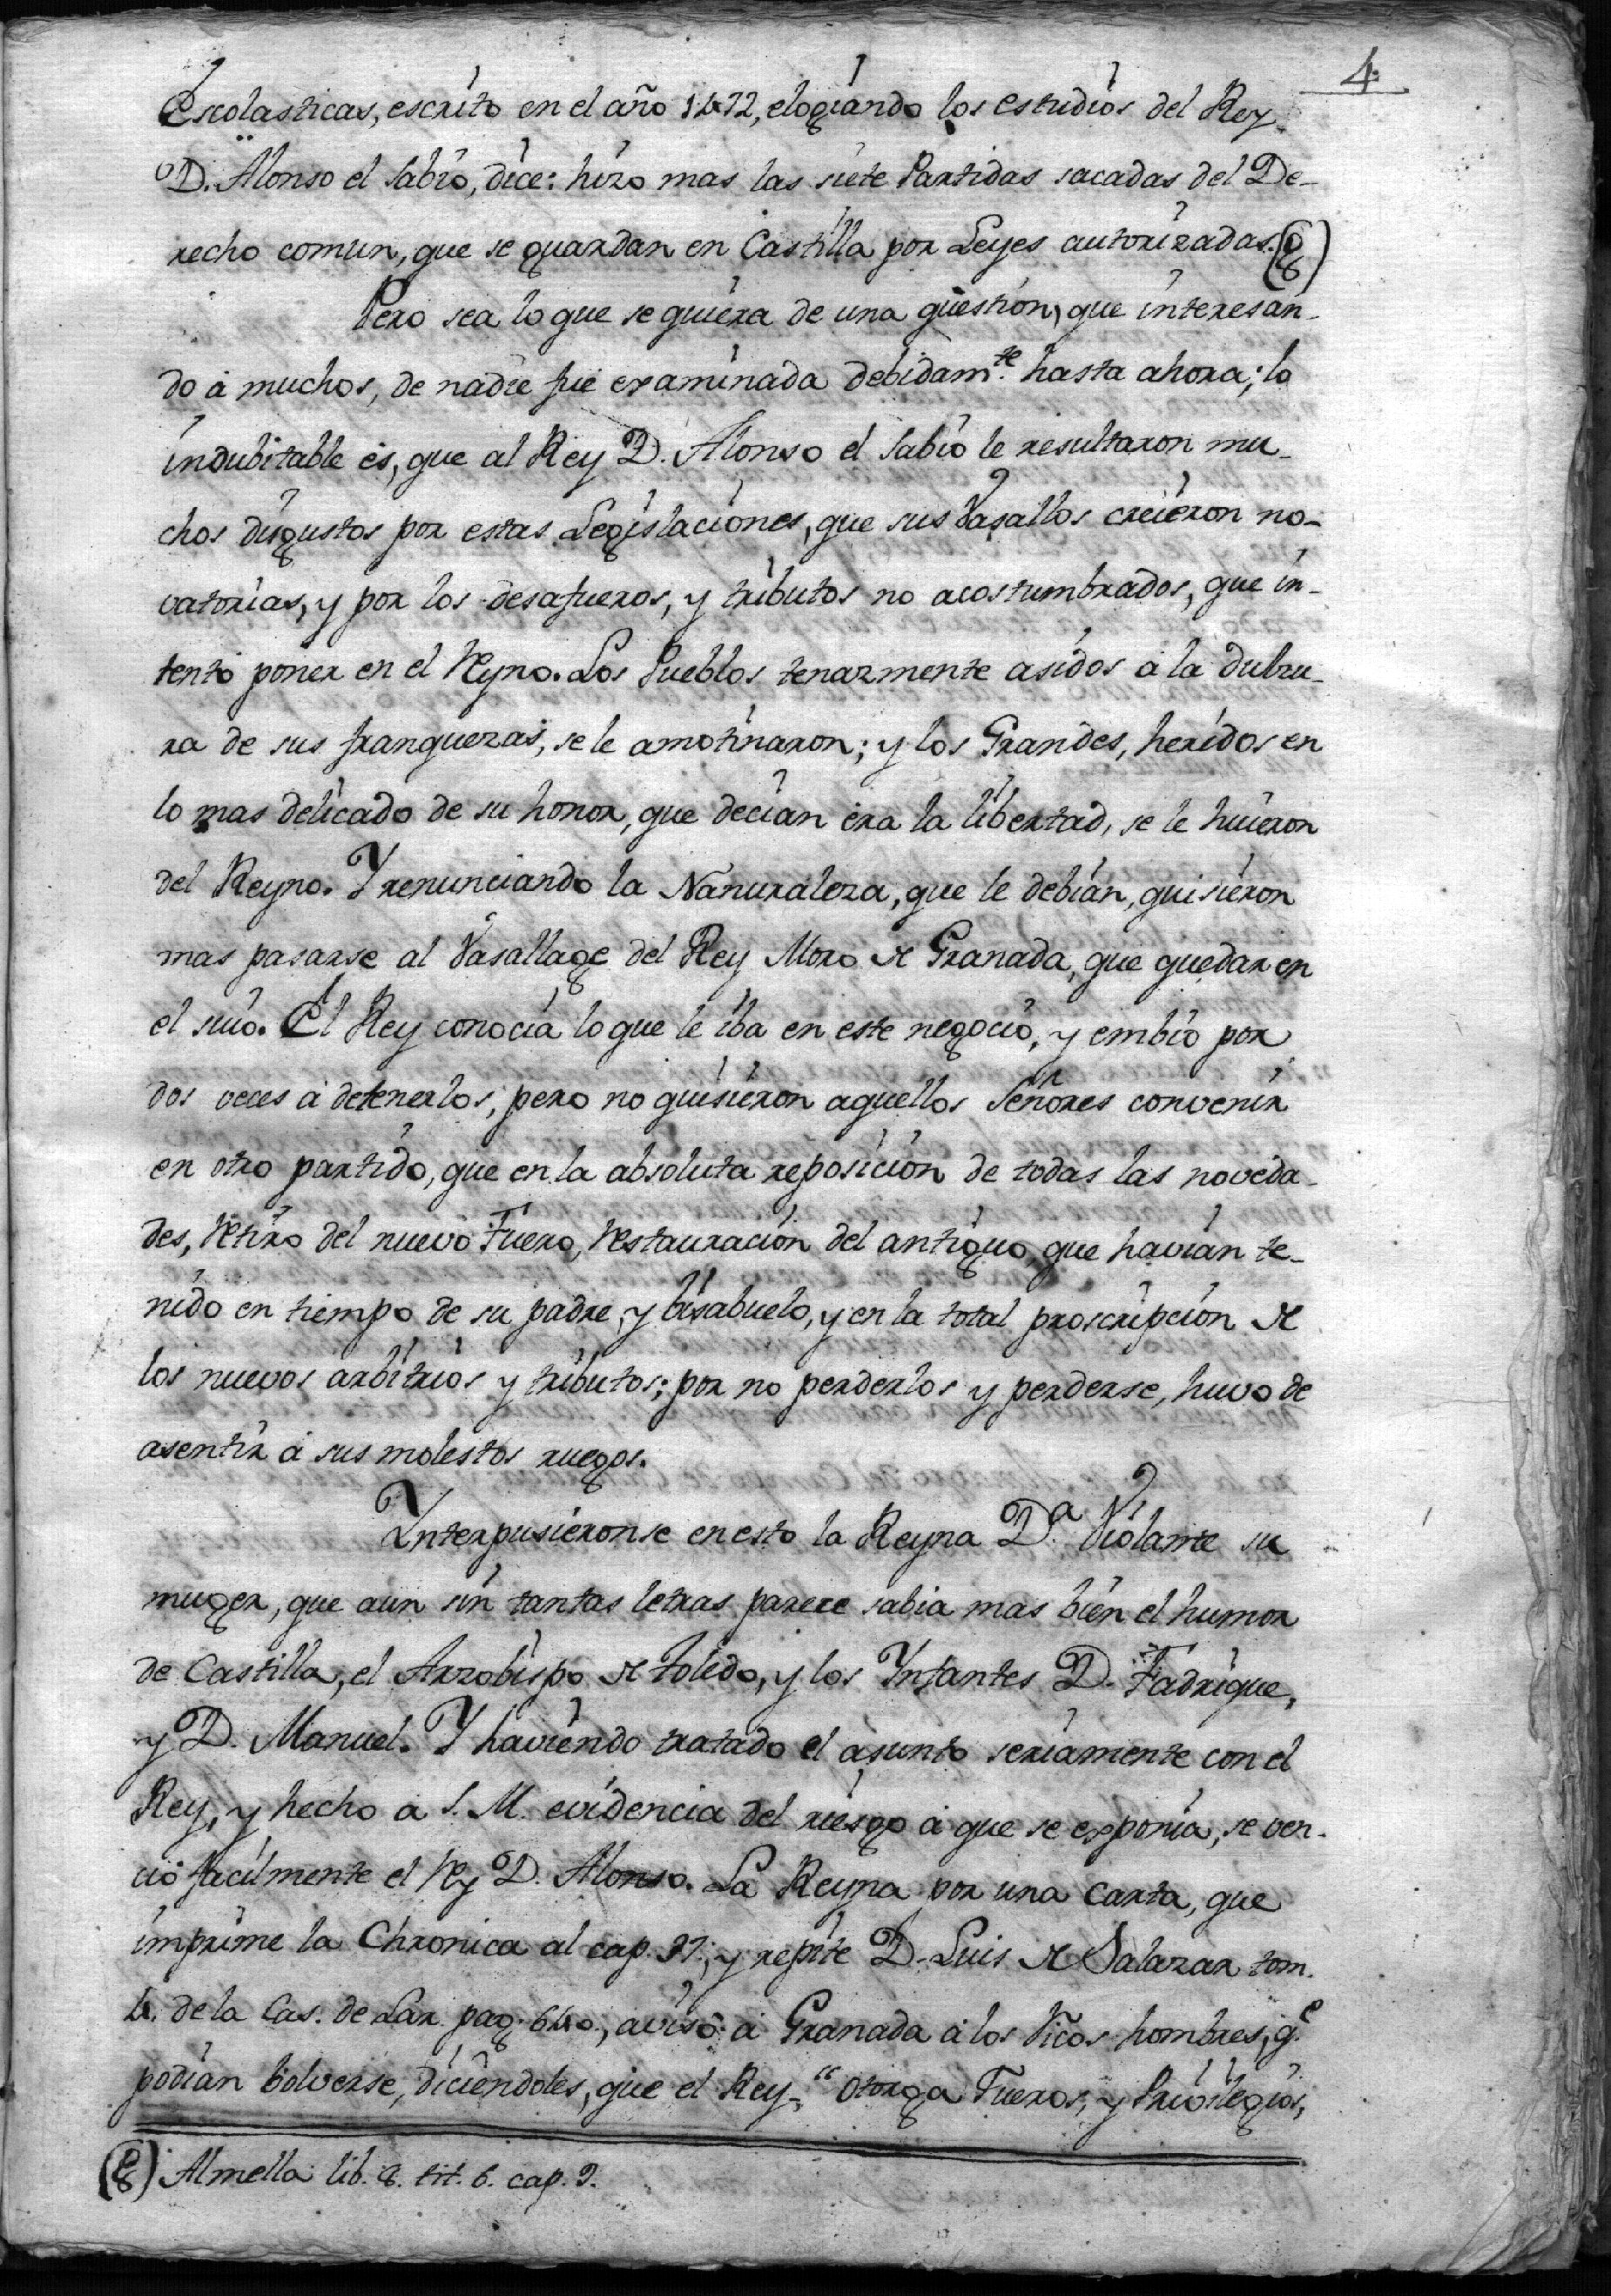 4.
Escolasticas, escrito en el año 1472, elogiando los estudios del Rey
D. Alonso el Sabio, dice: hizo mas las siete Partidas sacadas del De-
recho comun, que se guardan en Castilla por Leyes autorizadas. (g)
Pero sea lo que se quiera de una question, que interesan-
do á muchos, de nadie fue examinada debidam.te hasta ahora; lo
indubitable es, que al Rey D. Alonso el Sabio le resultaron mu-
chos disgustos por estas Legislaciones, que sus Vasallos creieron no-
vatorias, y por los desafueros, y tributos no acostumbrados, que in-
tentó poner en el Reyno. Los Pueblos tenazmente asidos á la dulzu-
ra de sus franquezas, se le amotinaron; y los Grandes, heridos en
lo mas delicado de su honor, que decian era la libertad, se le huieron
del Reyno. Y renunciando la Nanuraleza, que le debian, quisieron
mas pasarse al Vasallage del Rey Moro de Granada, que quedar en
el suio. El Rey conocia lo que le iba en este negocio, y embió por
dos veces á detenerlos, pero no quisieron aquellos Señores convenir
en otro partido, que en la absoluta reposicion de todas las noveda-
des, Retiro del nuevo Fuero, Restauracion del antiguo, que havian te-
nido en tiempo de su padre, y bisabuelo, y en la total proscripcion de
los nuevos arbitrios y tributos; por no perderlos y perderse, huvo de
asentir á sus molestos ruegos.
Interpusieronse en esto la Reyna D.a Violante su
muger, que aun sin tantas letras parece sabia mas bien el humor
de Castilla, el Arzobispo de Toledo, y los Ynfantes D. Fadrique,
y D. Manuel. Y haviendo tratado el asunto seriamente con el
Rey, y hecho a S. M. evidencia del riesgo á que se exponia, se ven-
ció facilmente el Rey D. Alonso. La Reyna por una Carta, que
imprime la Chronica al cap. 37, y repite D. Luis de Salazar tom.
4. de la Cas. de Lar. pag. 640, avisó á Granada á los Ricos hombres, q.e
podian bolverse, diciendoles, que el Rey, “Otorga Fueros, y Privilegios,
(g) Almella lib. 8. tit. 6. cap. 9.